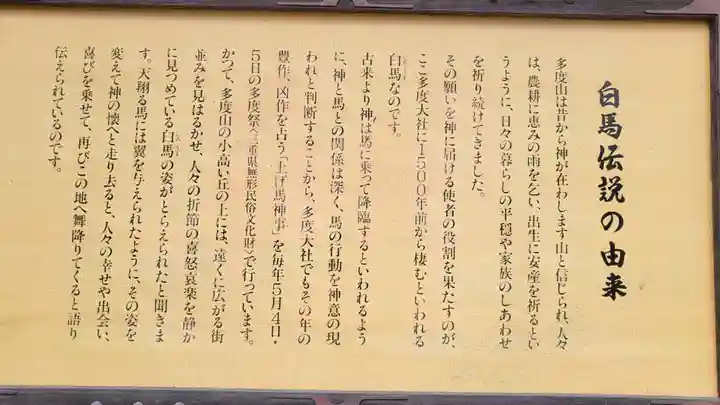 白馬伝説の由来
多度山は昔から神が在わします山と信じられ、人々
は、農耕に恵みの雨を乞い、出生に安産を祈るとい
うように、日々の暮らしの平穏や家族のしあわせ
を祈り続けてきました。
その願いを神に届ける使者の役割を果たすのが、
ここ多度大社に1500年前から棲むといわれる
白馬なのです。
古来より神は馬に乗って降臨するといわれるよう
に、神と馬との関係は深く、馬の行動を神意の現
われと判断することから、多度大社でもその年の
豊作、凶作を占う「上げ馬神事」を毎年5月4日・
5日の多度祭〈三重県無形民俗文化財〉で行っています。
かつて、多度山の小高い丘の上には、遠くに広がる街
並みを見はるかせ、人々の折節の喜怒哀楽を静か
に見つめている白馬の姿がとらえられたと聞きま
す。天翔る馬には翼を与えられたように、その姿を
変えて神の懐へと走り去ると、人々の幸せや出会い、
喜びを乗せて、再びこの地へ舞降りてくると語り
伝えられているのです。